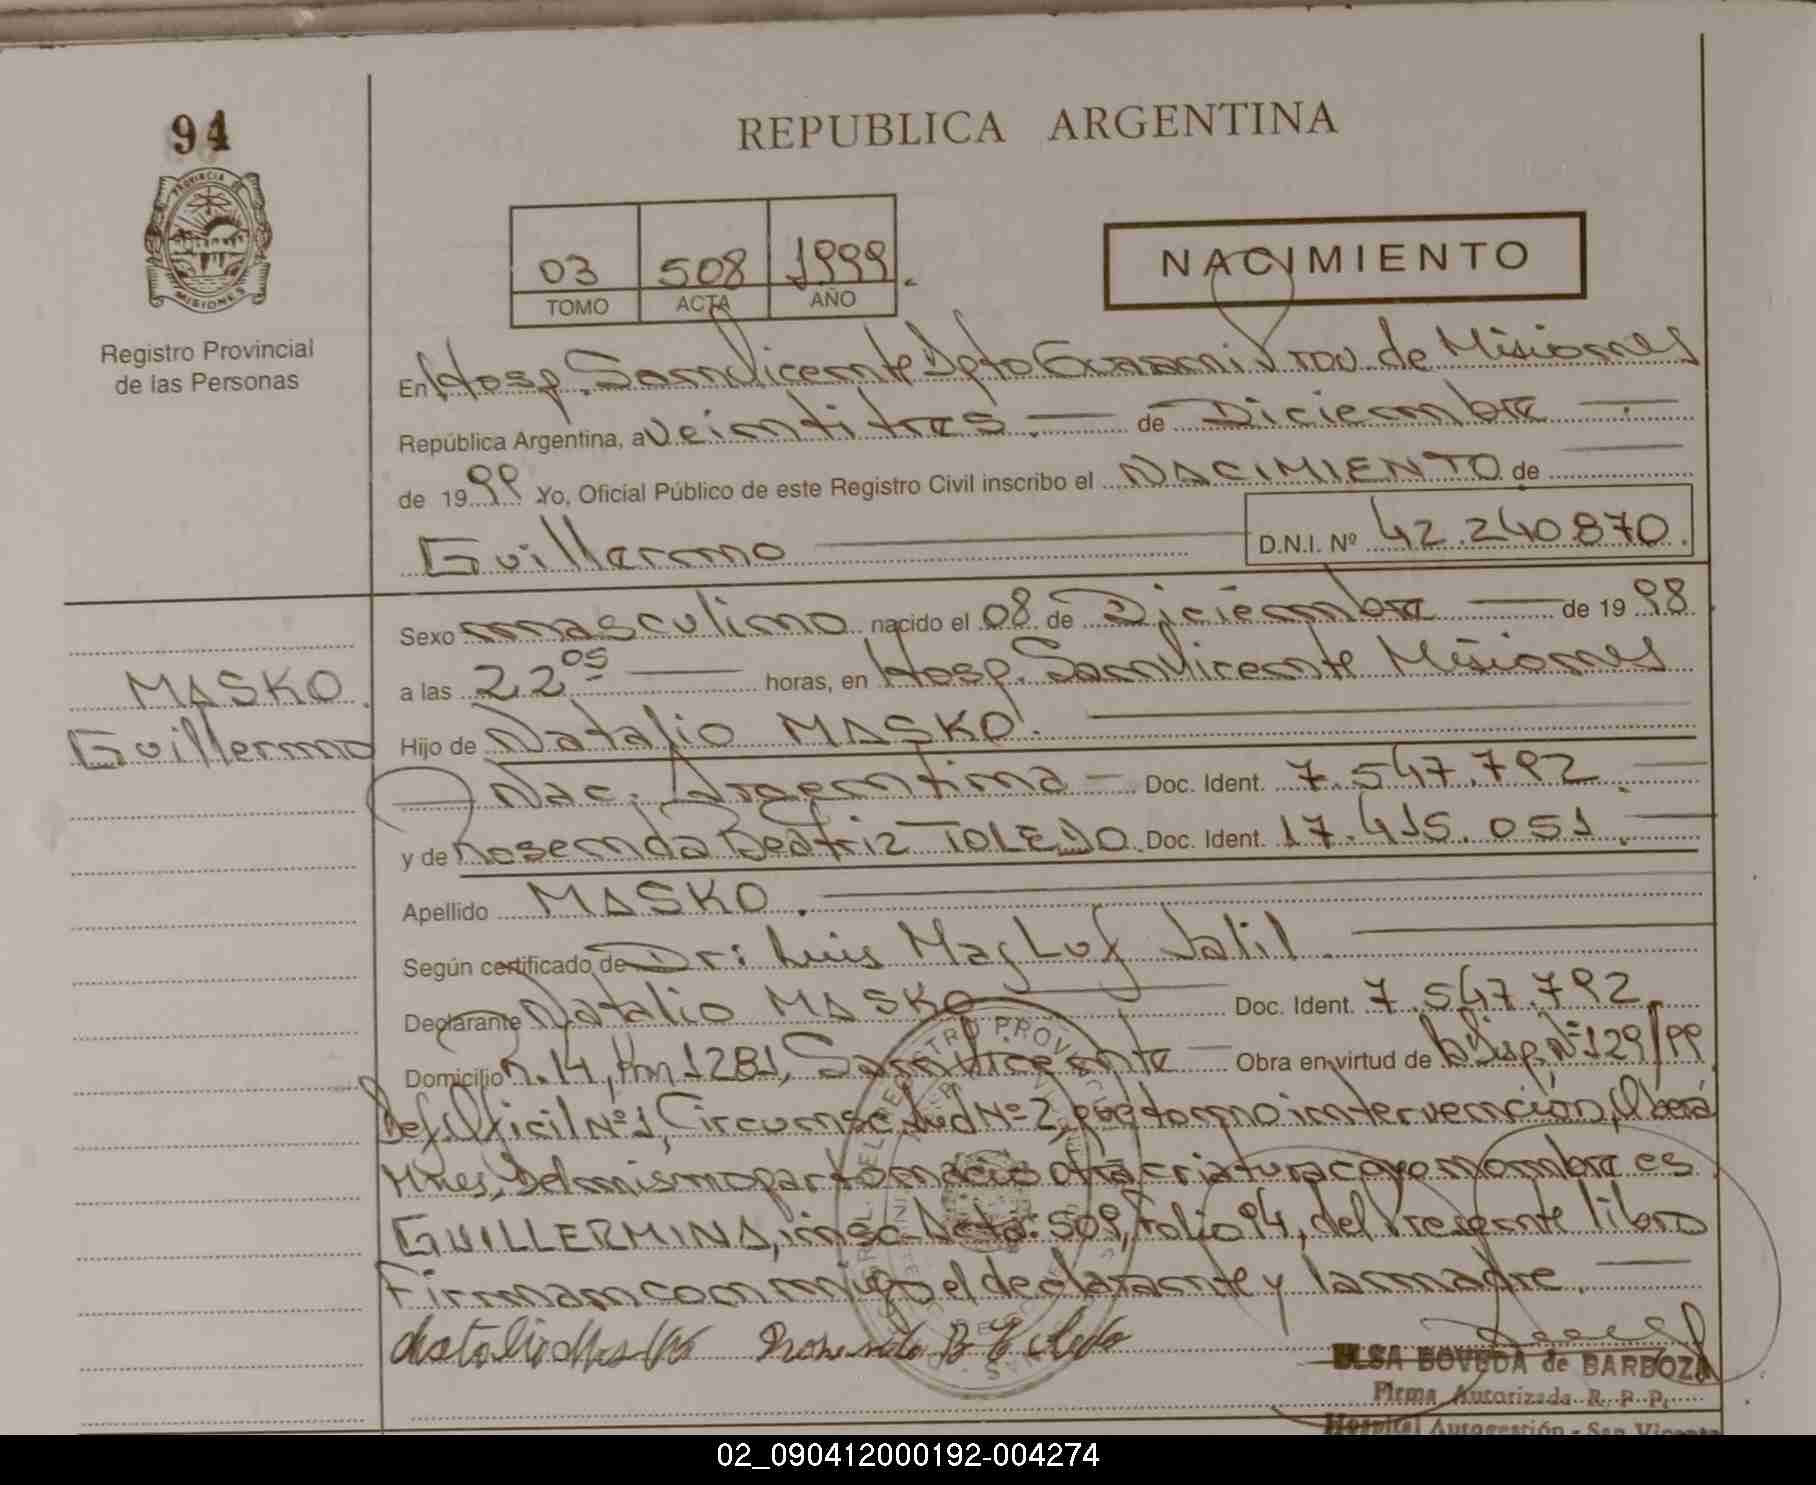 94
REPUBLICA ARGENTINA
PROVINCIA DE
MISIONES
Registro Provincial
de las Personas
03 508 1999.
TOMO ACTA AÑO
NACIMIENTO
En Hosp. San Vicente Dpto Guarani Prov. de Misiones
República Argentina, a Veintitres.— de Diciembre —.
de 1999 Yo, Oficial Público de este Registro Civil inscribo el NACIMIENTO de
Guillermo — D.N.I. Nº 42.240.870.
Sexo masculino nacido el 08 de Diciembre — de 1998
a las 22 05 — horas, en Hosp. San Vicente Misiones
MASKO.
Guillermo
Hijo de Natalio MASKO.
— Nac. Argentina — Doc. Ident. 7.547.792.—
y de Rosenda Beatriz TOLEDO. Doc. Ident. 17.415.051.—
Apellido MASKO.
Según certificado de Dr: Luis Jalil.
Declarante Natalio MASKO Doc. Ident. 7.547.792.
Domicilio R. 14, Km 1281, San Vicente — Obra en virtud de Disp. Nº 129/99
Def. Oficial Nº 1, Circunsc. Jud Nº 2, que tomo intervención, Oberá
Mnes, Del mismo parto nacio otra criatura cuyo nombre es
GUILLERMINA, insc. Acta: 509, Folio 94, del Presente libro
Firman conmigo el declarante y la madre.
Natalio Masko Rosenda B Toledo
ELSA BOVEDA de BARBOZA
Firma Autorizada R. P. P.
Hospital Autogestión - San Vicente
02_090412000192-004274